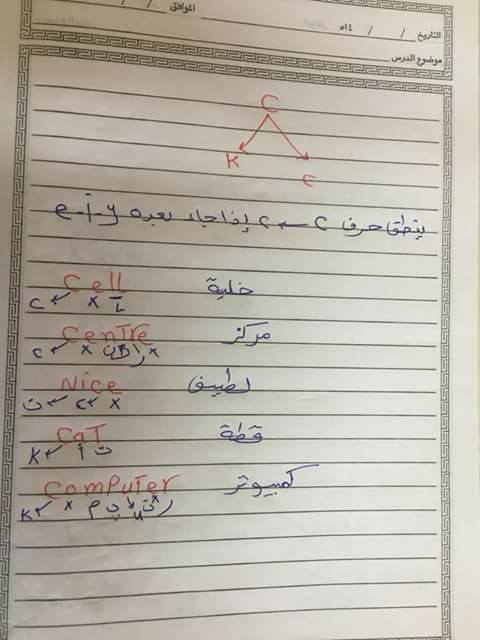 الموافق / /
التاريخ / / ١٤هـ
موضوع الدرس
C
K c
ينطق حرف c ← c إذا جاء بعده e - i - y
Cell خلية
c ← x
CenTre مركز
c ← x
Nice لطيف
ن ← c ← x
CaT قطة
K ← أ ت
ComPuTer كمبيوتر
K ← x م